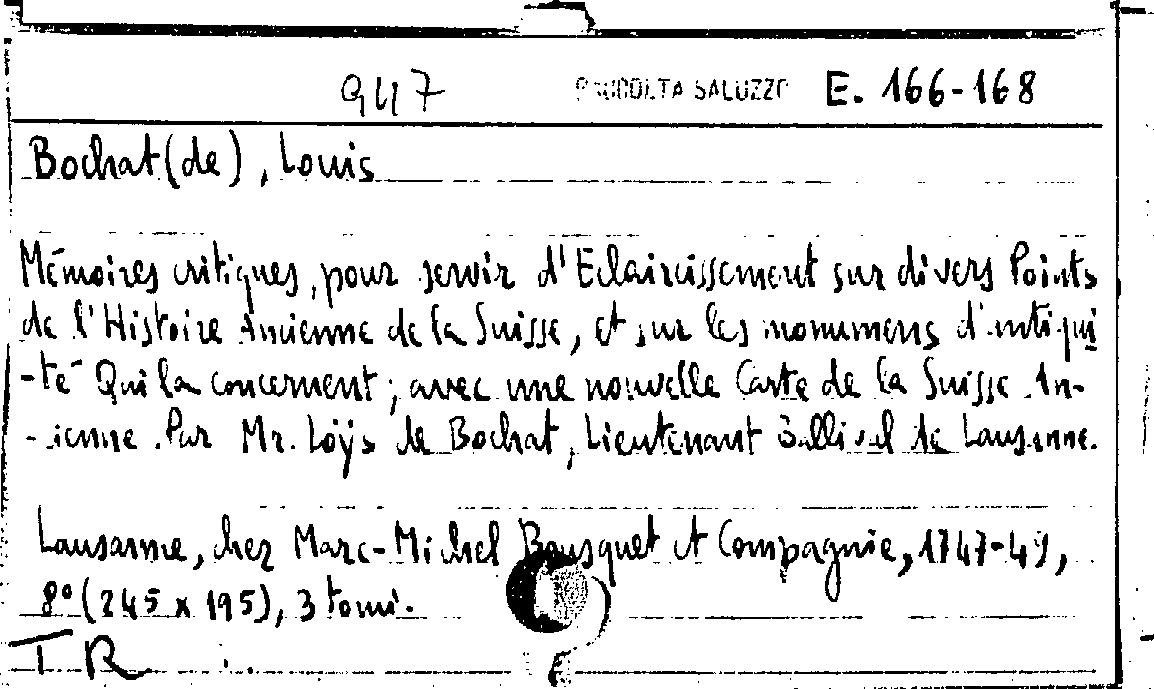 947 RACCOLTA SALUZZO E. 166-168
Bochat (de), Louis
Mémoires critiques, pour servir d'Eclaircissement sur divers Points
de l'Histoire Ancienne de la Suisse, et sur les monumens d'Antiqui
-té Qui la concernent; avec une nouvelle Carte de la Suisse An-
-cienne. Par Mr. Loÿs de Bochat, Lieutenant Ballival de Lausanne.
Lausanne, chez Marc-Michel Bousquet et Compagnie, 1747-49,
8° (245 x 195), 3 tomi.
TR